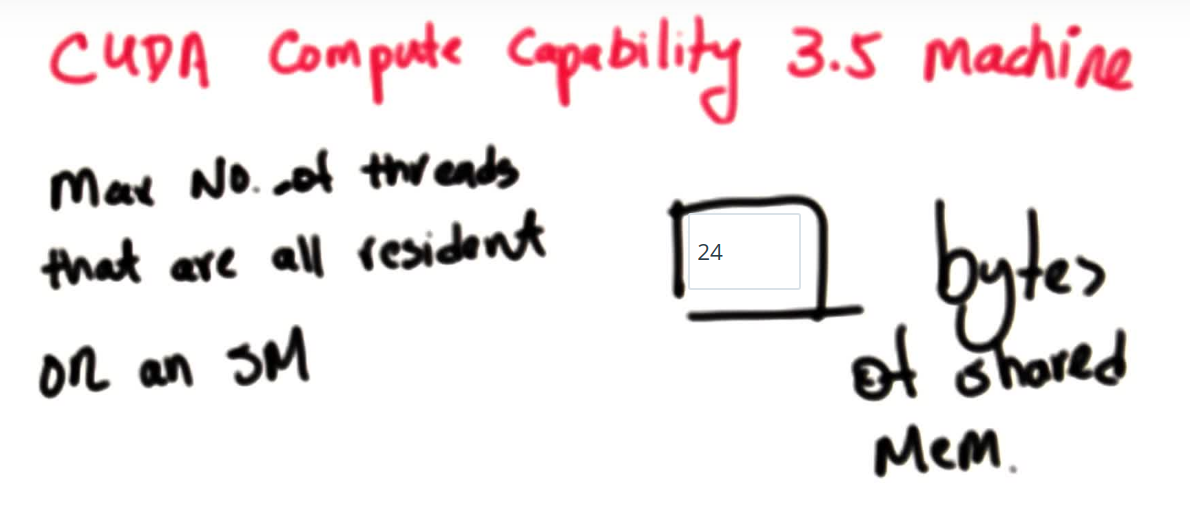 CUDA Compute Capability 3.5 Machine
Max No. of threads
that are all resident
on an SM
24
bytes
of shared
Mem.